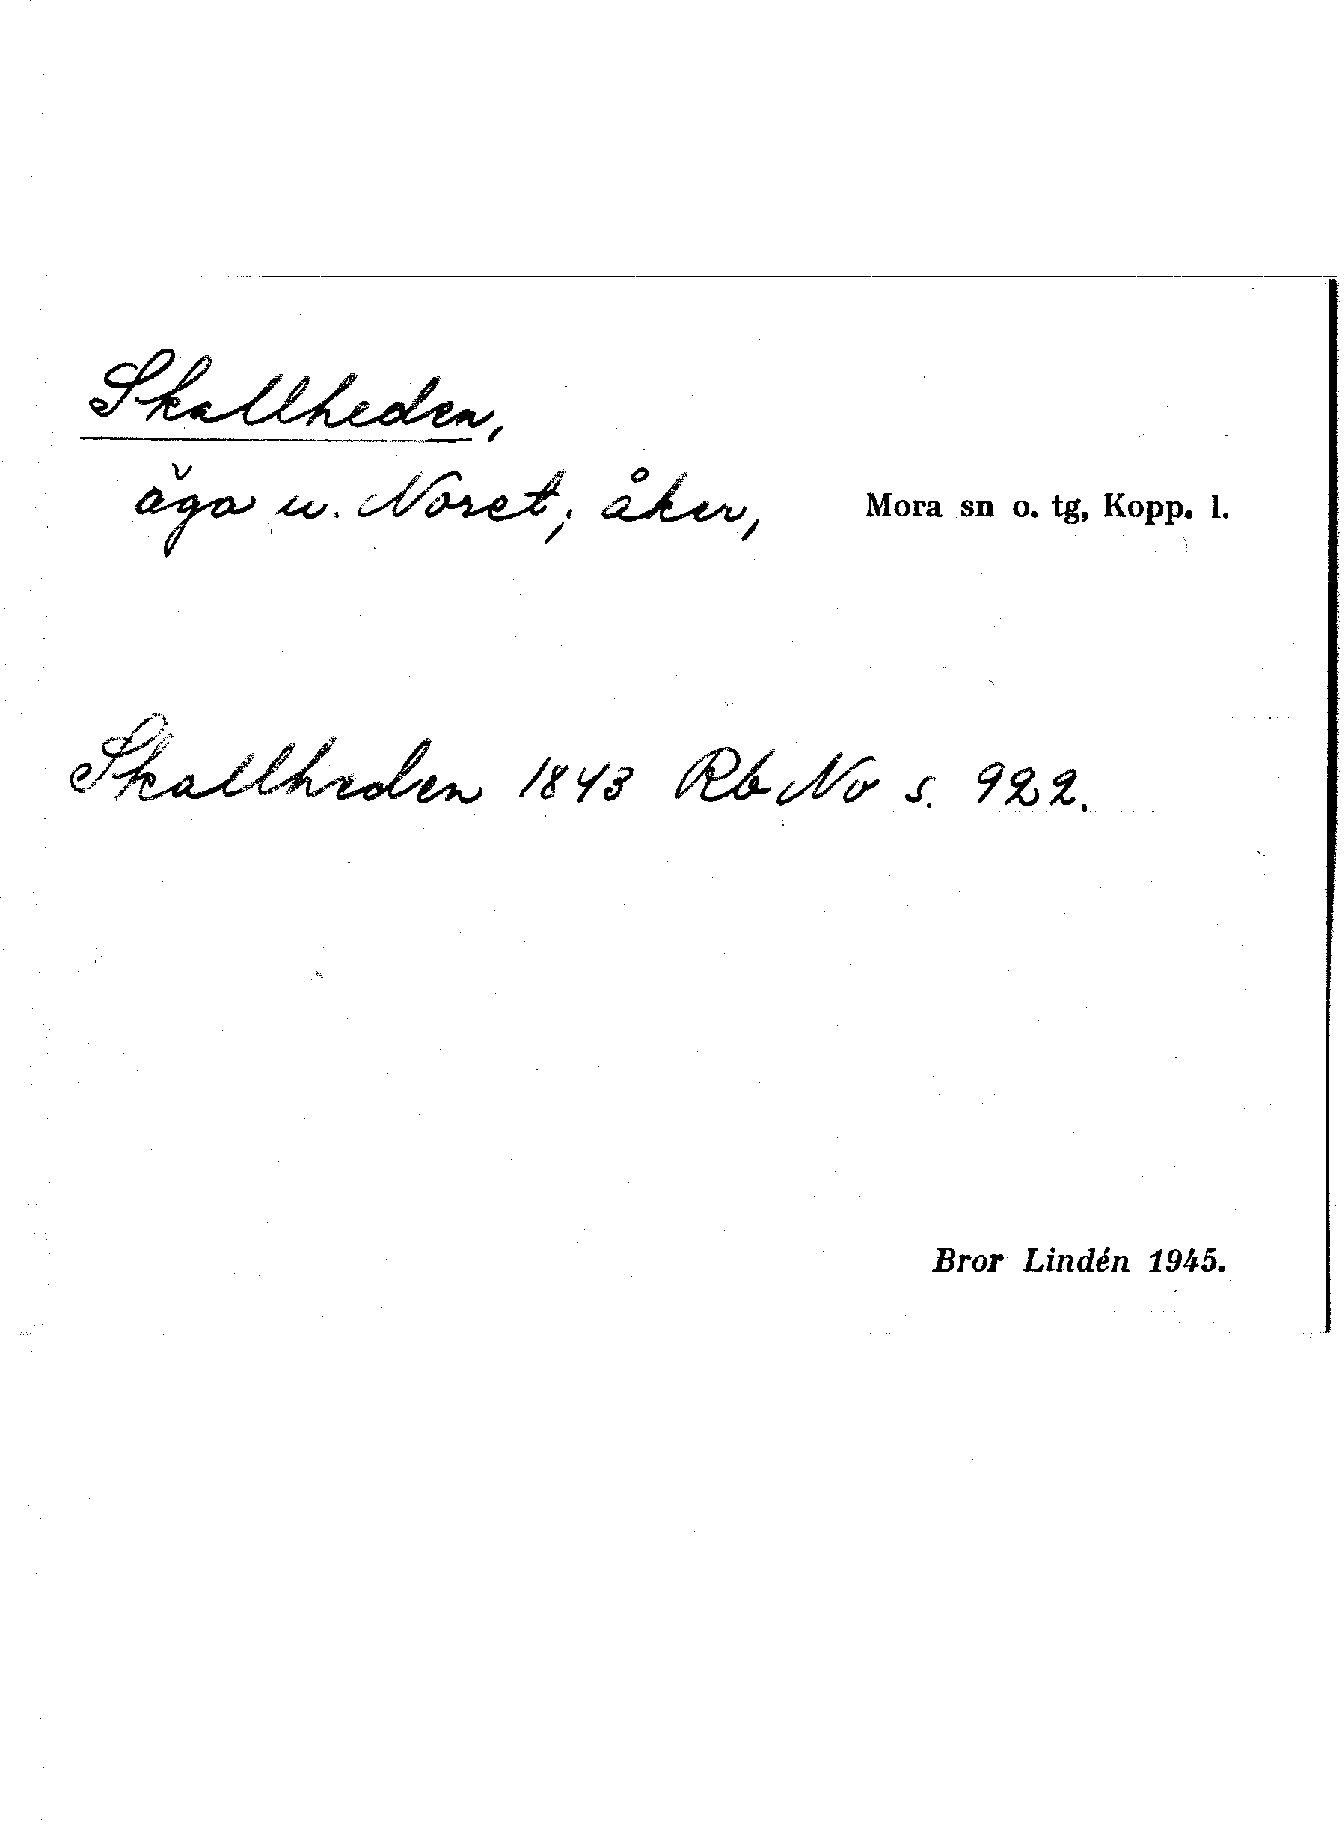 Skallheden,
äga u. Noret; åker, Mora sn o. tg, Kopp. l.
Skallheden 1843 Rb No s. 922.
Bror Lindén 1945.